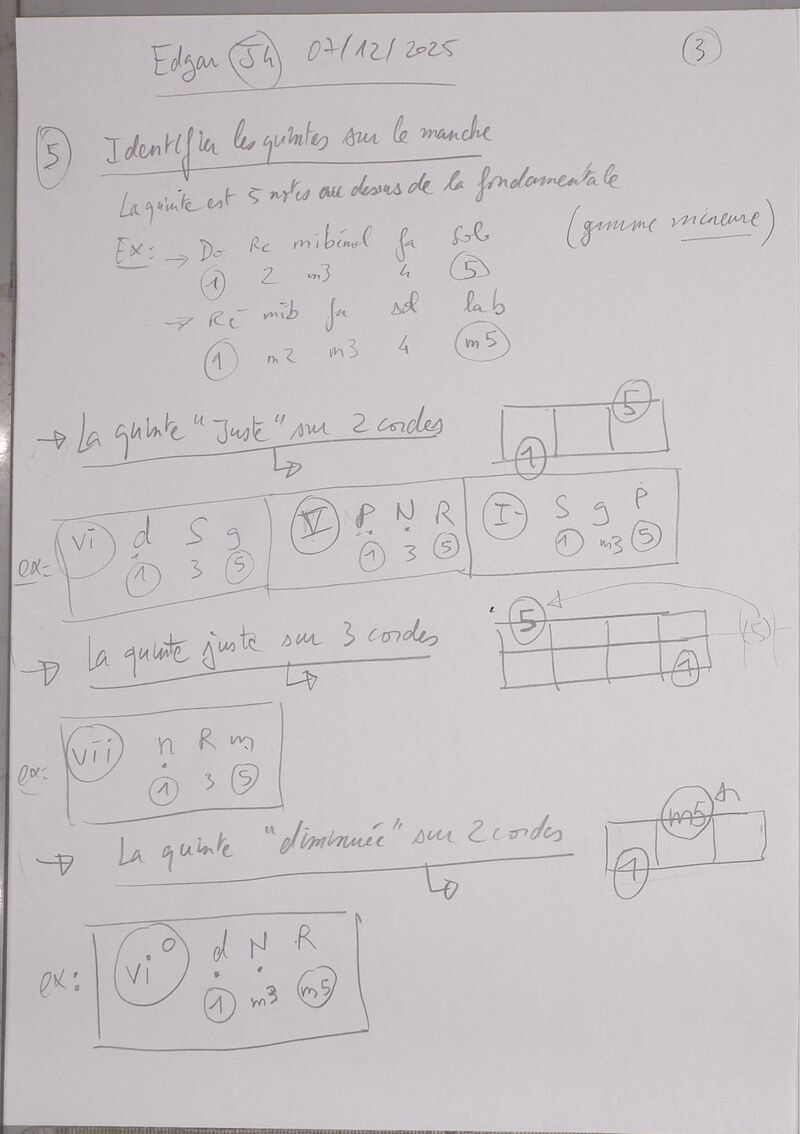 Edgar J4 07/12/2025
3
5 Identifier les quintes sur le manche
La quinte est 5 notes au dessus de la fondamentale
(gamme mineure)
Ex: → Do Re mi bémol fa sol
1 2 m3 4 5
→ Ré mib fa sol lab
1 m2 m3 4 m5
→ La quinte "Juste" sur 2 cordes
5
1
ex= vi d S g
1 3 5
V P N R
1 3 5
I- S g P
1 m3 5
→ La quinte juste sur 3 cordes
5 (5)
1
ex= vii n R m
1 3 5
→ La quinte "diminuée" sur 2 cordes
m5
1
ex: vi° d N R
1 m3 m5